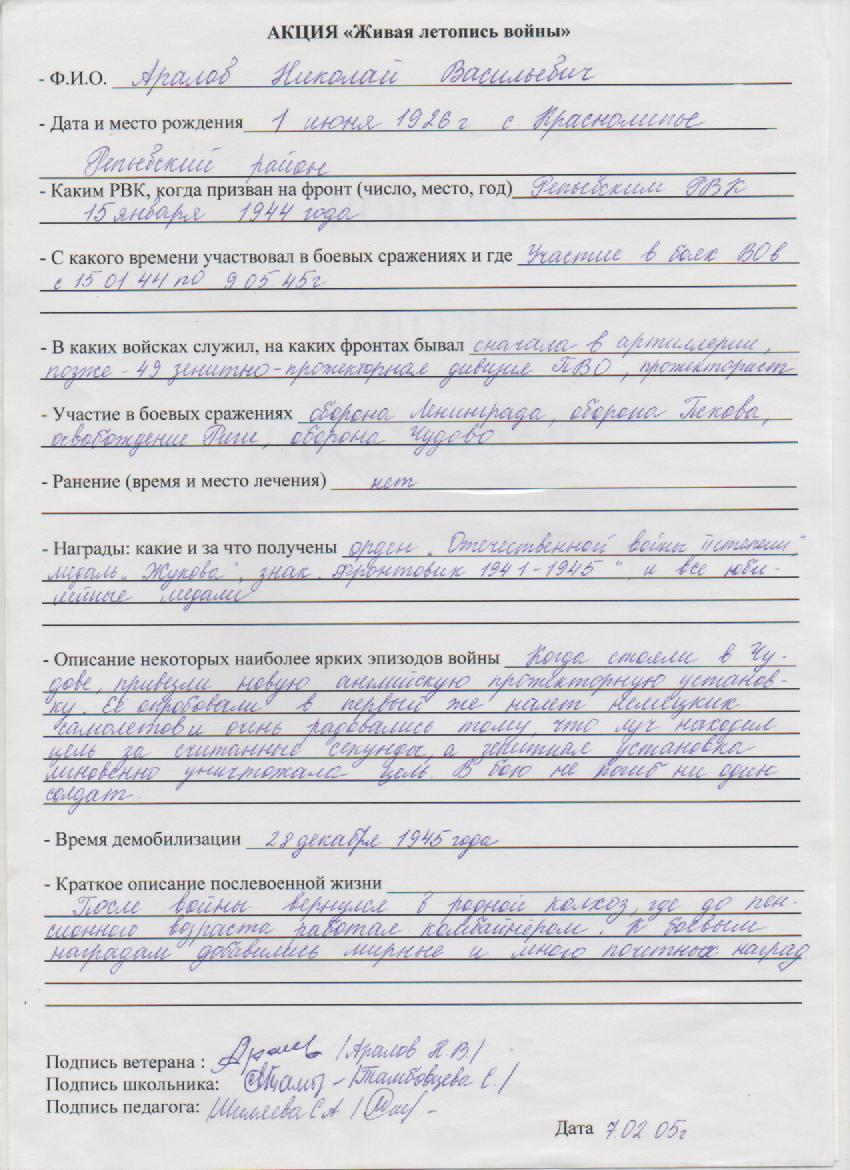 АКЦИЯ «Живая летопись войны»
- Ф.И.О. Аралов Николай Васильевич
- Дата и место рождения 1 июня 1926 г с. Краснолипье
Репьёвский район
- Каким РВК, когда призван на фронт (число, место, год) Репьёвским РВК
15 января 1944 года
- С какого времени участвовал в боевых сражениях и где Участие в боях ВОв
с 15 01 44 по 9 05. 45г
- В каких войсках служил, на каких фронтах бывал сначала в артиллерии,
позже - 49 зенитно-прожекторная дивизия ПВО, прожекторист
- Участие в боевых сражениях оборона Ленинграда, оборона Пскова,
освобождение Риги, оборона Чудово
- Ранение (время и место лечения) нет
- Награды: какие и за что получены орден „Отечественной войны II степени",
медаль „Жукова", знак „Фронтовик 1941-1945" и все юби-
лейные медали
- Описание некоторых наиболее ярких эпизодов войны Когда стояли в Чу-
дове, привезли новую английскую прожекторную установ-
ку. Её опробовали в первый же налет немецких
самолетов и очень радовались тому, что луч находил
цель за считанные секунды, а зенитная установка
мгновенно уничтожала цель. В бою не погиб ни один
солдат.
- Время демобилизации 28 декабря 1945 года
- Краткое описание послевоенной жизни
После войны вернулся в родной колхоз, где до пен-
сионного возраста работал комбайнёром. К боевым
наградам добавились мирные и много почетных наград
Подпись ветерана : /Аралов Н.В./
Подпись школьника: /Тамбовцева С./
Подпись педагога: /Шиляева С А /
Дата 7.02.05г